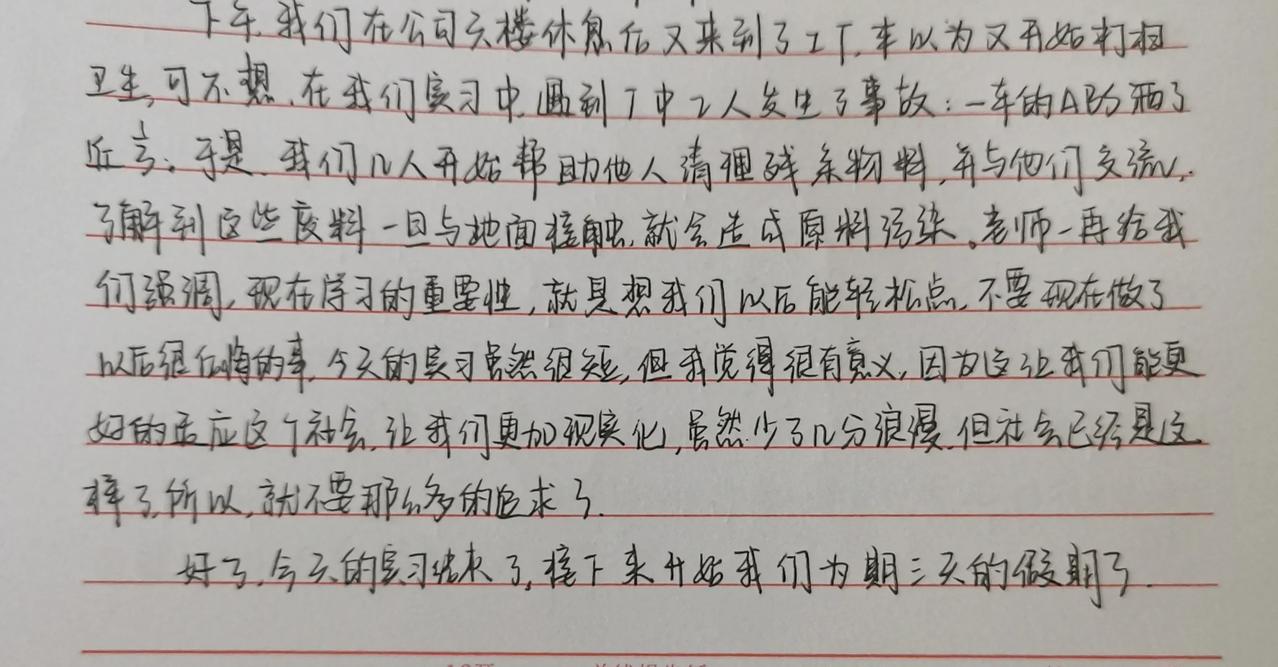 下午,我们在公司六楼休息后又来到了工厂,本以为又开始打扫
卫生,可不想,在我们实习中,遇到厂中工人发生了事故:一车的ABS洒了
近1/3。于是,我们几人开始帮助他人清理残余物料,并与他们交流,
了解到这些废料一旦与地面接触,就会造成原料污染。老师一再给我
们强调,现在学习的重要性,就是想我们以后能轻松点,不要现在做了
以后很后悔的事,今天的实习虽然很短,但我觉得很有意义,因为这让我们能更
好的适应这个社会,让我们更加现实化,虽然少了几分浪漫,但社会已经是这
样了,所以,就不要那么多的追求了.
好了,今天的实习结束了,接下来开始我们为期三天的假期了.